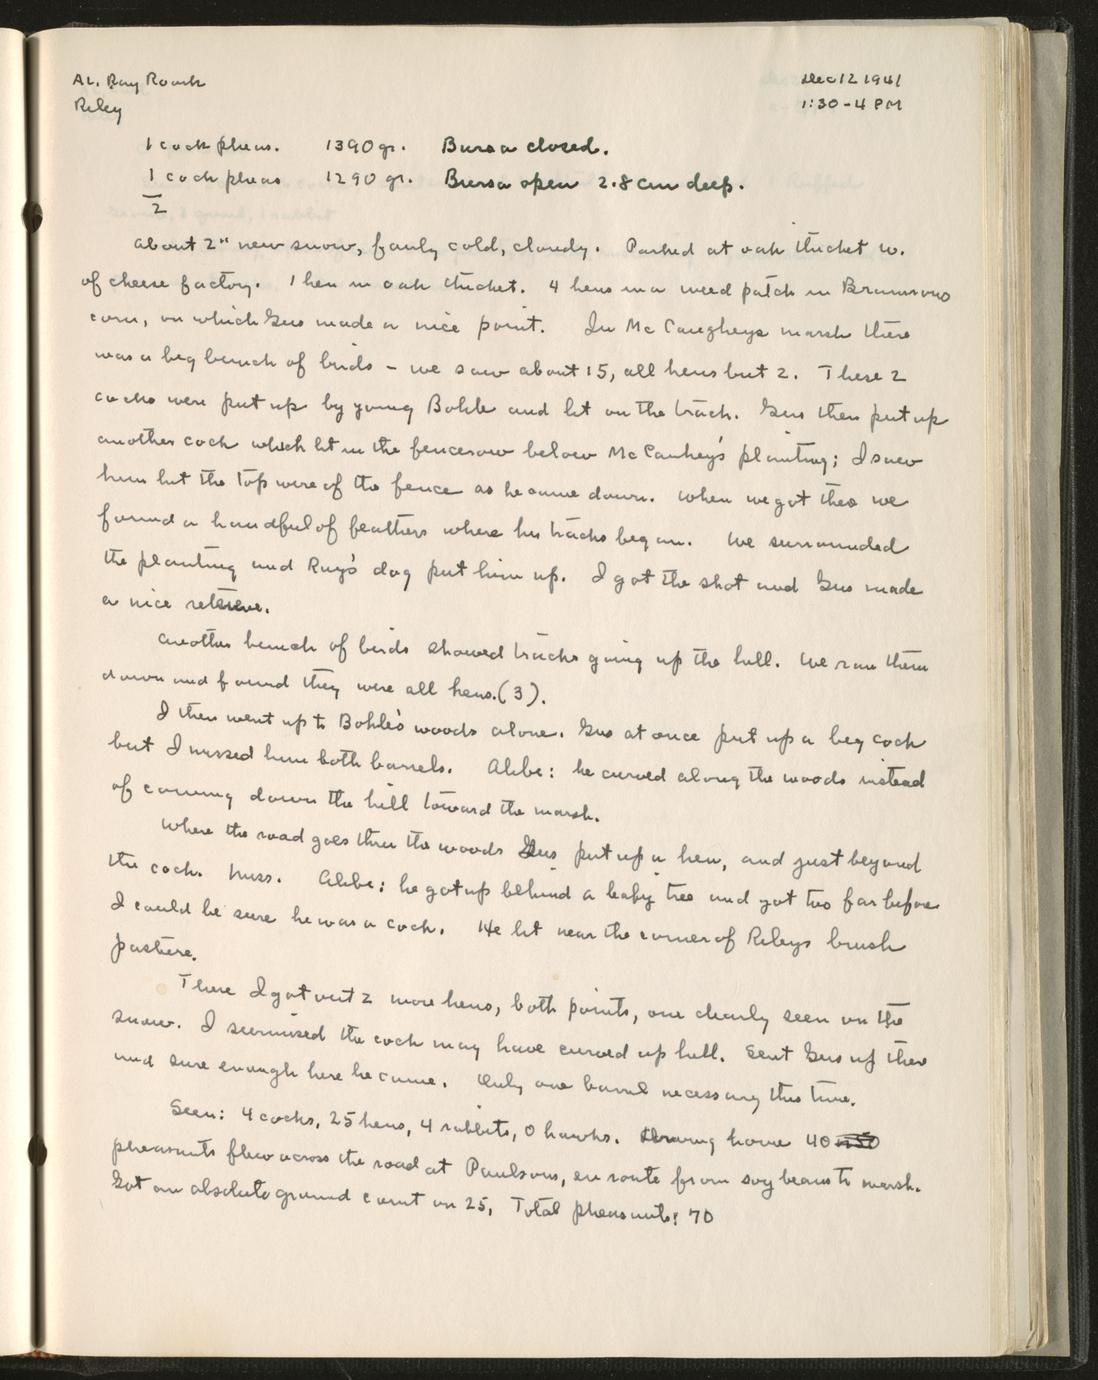 AL. Ray Roark
Dec 12 1941
Riley
1:30-4 PM
1 cock pheas. 1390 gr. Bursa closed.
1 cock pheas 1290 gr. Bursa open 2.8 cm deep.
2
About 2" new snow, fairly cold, cloudy. Parked at oak thicket w.
of cheese factory. 1 hen in oak thicket. 4 hens in a weed patch in
corn, on which Gus made a nice point. In McCaugheys marsh there
was a big bunch of birds - we saw about 15, all hens but 2. These 2
cocks were put up by young Bohle and lit on the track. Gus then put up
another cock which lit in the fencerow below McCauhey's planting; I saw
him hit the top wire of the fence as he came down. When we got there we
found a handful of feathers where his tracks began. We surrounded
the planting and Ray's dog put him up. I got the shot and Gus made
a nice retrieve.
Another bunch of birds showed tracks going up the hill. We ran them
down and found they were all hens. (3).
I then went up to Bohle's woods alone. Gus at once put up a big cock
but I missed him both barrels. Alibi: he curved along the woods instead
of coming down the hill toward the marsh.
Where the road goes thru the woods Gus put up a hen, and just beyond
the cock. Miss. Alibi: he got up behind a leafy tree and got too far before
I could be sure he was a cock. He lit near the corner of Rileys brush
pasture.
There I got out 2 more hens, both points, one clearly seen on the
snow. I surmised the cock may have curved up hill. Sent Gus up there
and sure enough here he came. Only one barrel necessary this time.
Seen: 4 cocks, 25 hens, 4 rabbits, 0 hawks. Driving home 40
pheasants flew across the road at Paulsons, en route from soy beans to marsh.
Got an absolute ground count on 25. Total pheasants: 70